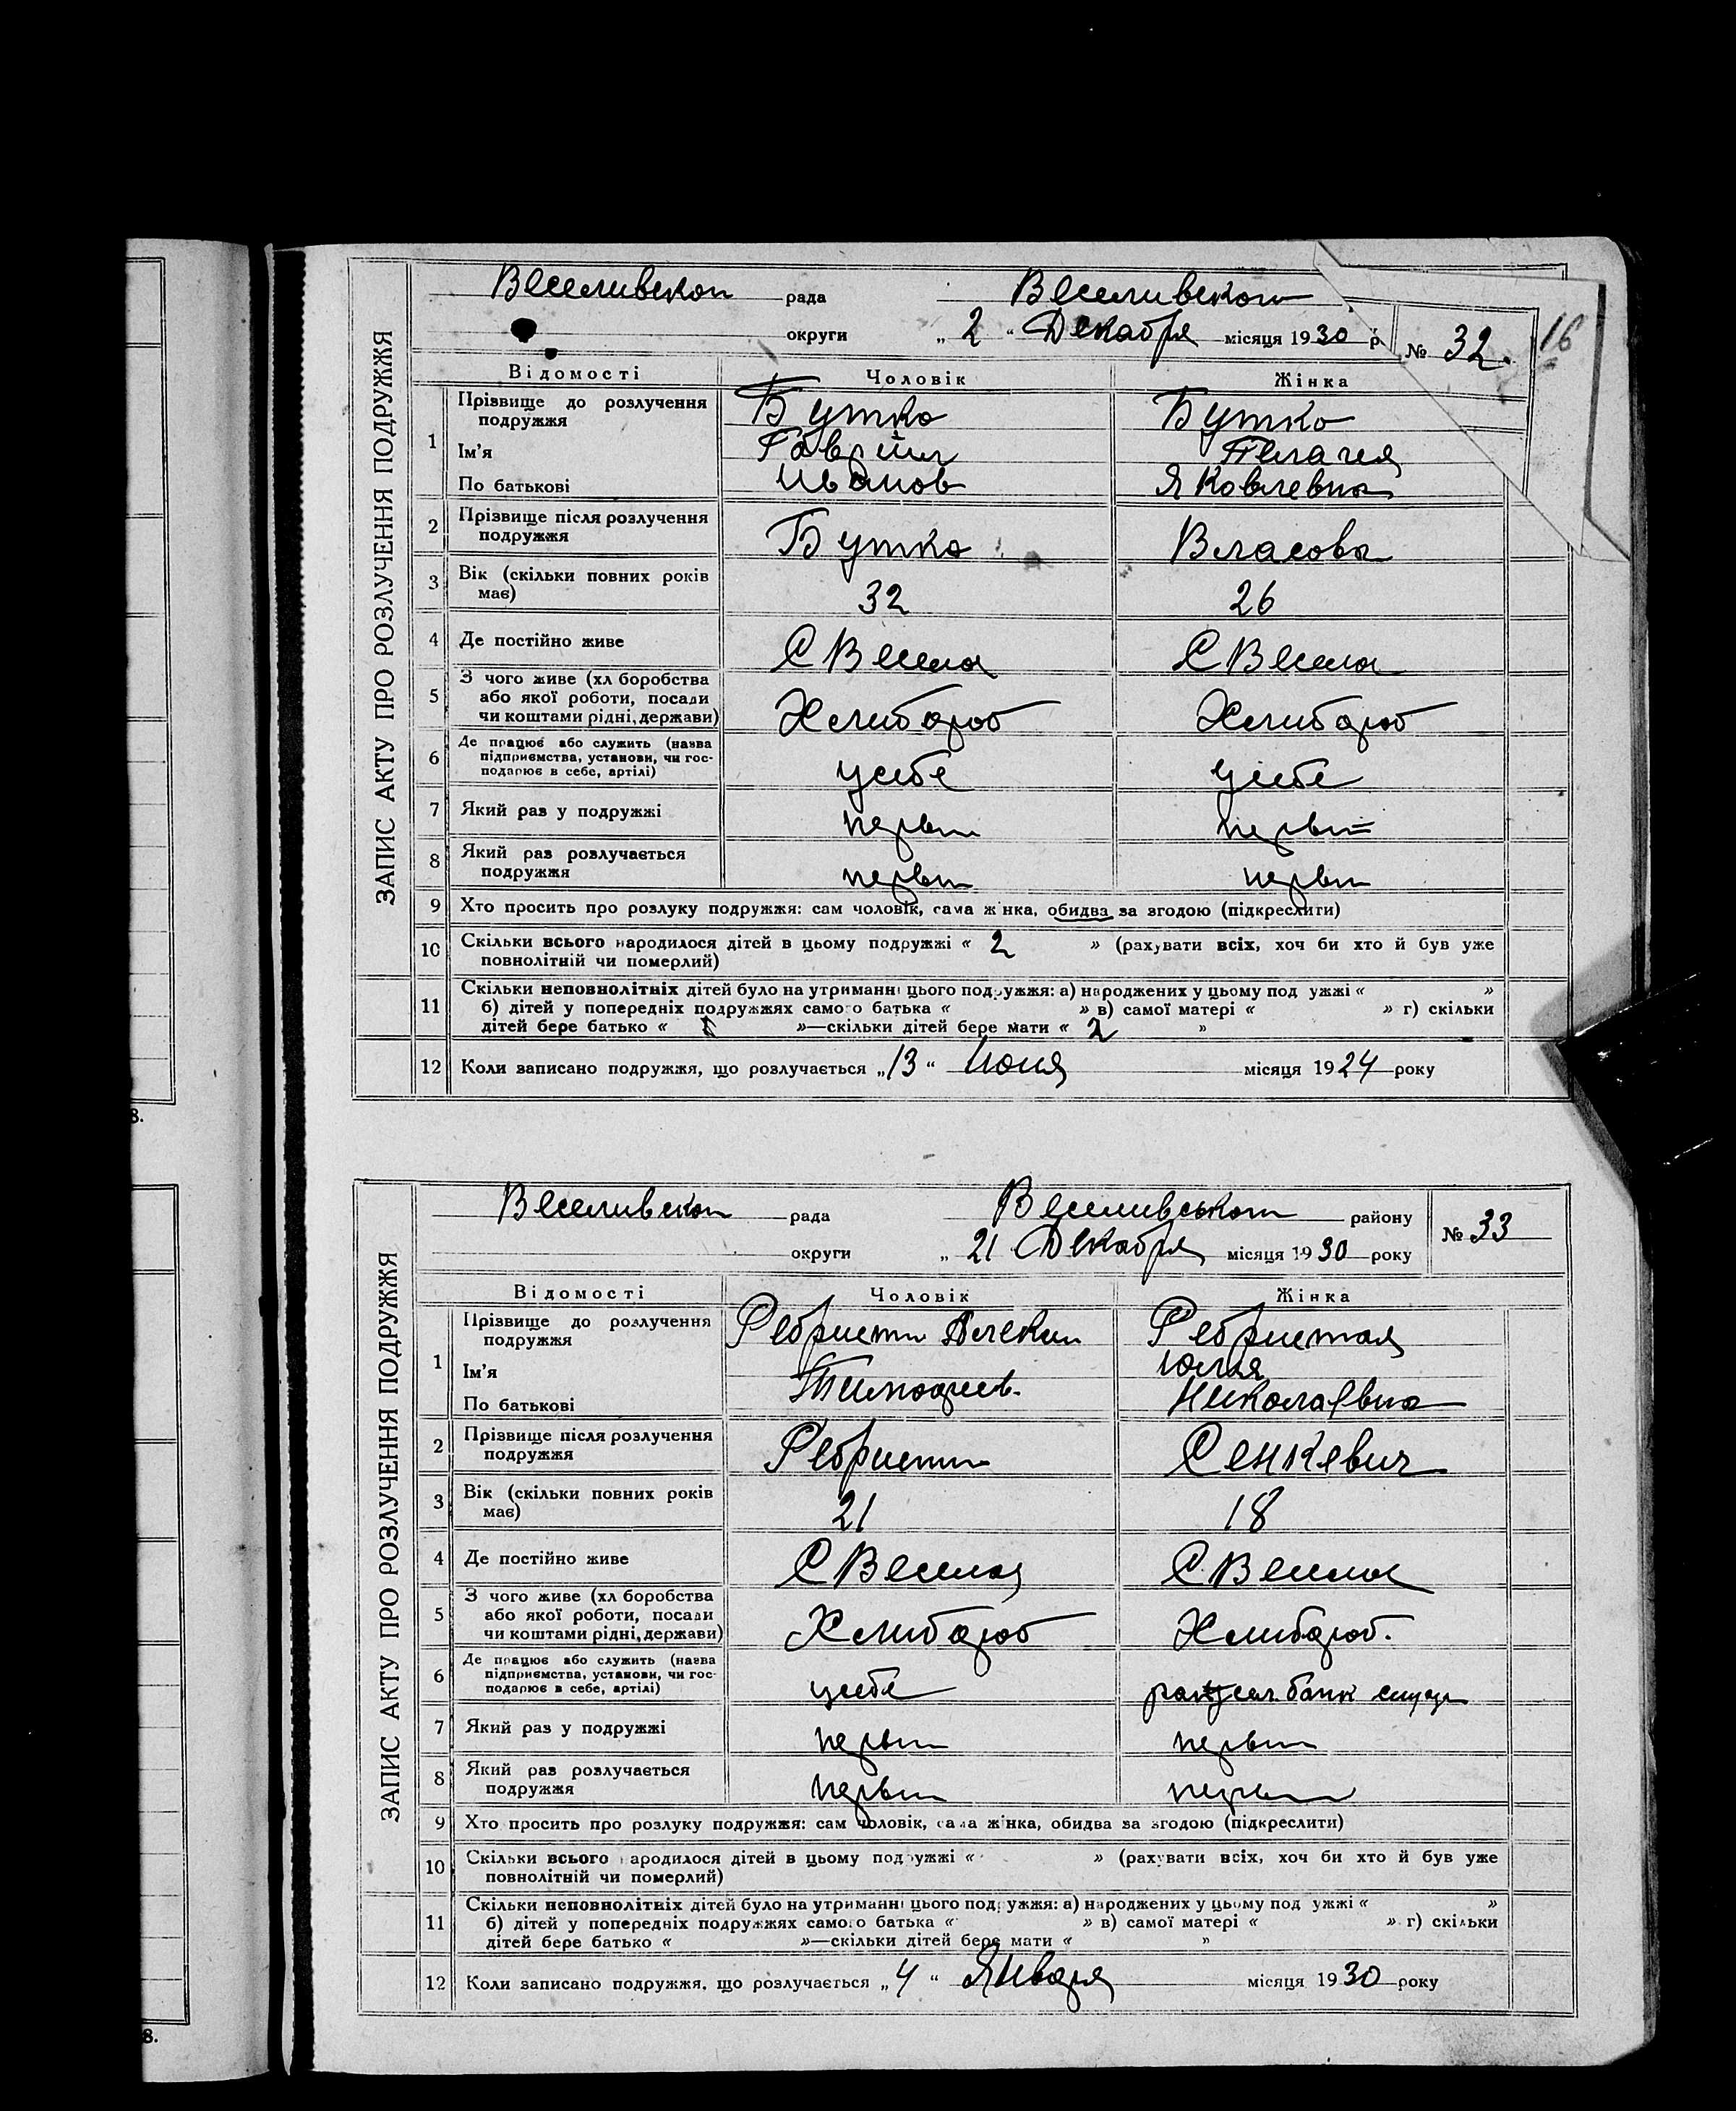 ЗАПИС АКТУ ПРО РОЗЛУЧЕННЯ ПОДРУЖЖЯ
Веселивскои рада Веселивскои
округи „ 2 “ Декабря місяця 1930 р № 32. 16
Відомості Чоловік Жінка
1 Прізвище до розлучення подружжя Бутко Бутко
Ім'я Гаврiил Пелагея
По батькові Иванов Яковлевна
2 Прізвище після розлучення подружжя Бутко Власова
3 Вік (скільки повних років має) 32 26
4 Де постійно живе С Весела С Весела
5 З чого живе (хл боробства або якої роботи, посади чи коштами рідні, держави) Хлибороб Хлибороб
6 Де працює або служить (назва підприємства, установи, чи господарює в себе, артілі) усебе усебе
7 Який раз у подружжі первы первы
8 Який раз розлучається подружжя первы первы
9 Хто просить про розлуку подружжя: сам чоловік, сама жінка, обидва за згодою (підкреслити)
10 Скільки всього народилося дітей в цьому подружжі « 2 » (рахувати всіх, хоч би хто й був уже
повнолітній чи померлий)
11 Скільки неповнолітніх дітей було на утриманні цього подружжя: а) народжених у цьому под ужжі « »
б) дітей у попередніх подружжях самого батька « » в) самої матері « » г) скільки
дітей бере батько « »—скільки дітей бере мати « 2 »
12 Коли записано подружжя, що розлучається „13“ Июня місяця 1924 року
8.
ЗАПИС АКТУ ПРО РОЗЛУЧЕННЯ ПОДРУЖЖЯ
Веселивскои рада Веселивськои району № 33
округи „ 21 Декабря місяця 1930 року
Відомості Чоловік Жінка
1 Прізвище до розлучення подружжя Ребристи Алекси Ребристая
Ім'я Юлия
По батькові Тимофиев. Николаевна
2 Прізвище після розлучення подружжя Ребристи Сенкевич
3 Вік (скільки повних років має) 21 18
4 Де постійно живе С Весела С. Весела
5 З чого живе (хл боробства або якої роботи, посади чи коштами рідні, держави) Хлибороб Хлибороб.
6 Де працює або служить (назва підприємства, установи, чи господарює в себе, артілі) усебе банк
7 Який раз у подружжі первы первы
8 Який раз розлучається подружжя первы первы
9 Хто просить про розлуку подружжя: сам чоловік, сама жінка, обидва за згодою (підкреслити)
10 Скільки всього народилося дітей в цьому подружжі « » (рахувати всіх, хоч би хто й був уже
повнолітній чи померлий)
11 Скільки неповнолітніх дітей було на утриманні цього подружжя: а) народжених у цьому под ужжі « »
б) дітей у попередніх подружжях самого батька « » в) самої матері « » г) скільки
дітей бере батько « »—скільки дітей бере мати « »
12 Коли записано подружжя, що розлучається „4“ Января місяця 1930 року
8.